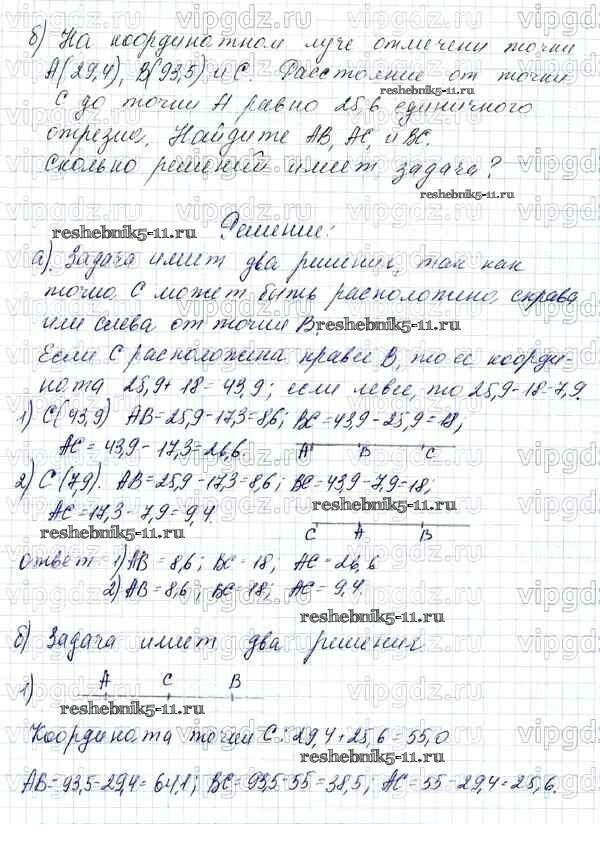 б) На координатном луче отмечены точки
A(29,4), B(93,5) и C. Расстояние от точки
C до точки A равно 25,6 единичного
отрезка. Найдите AB, AC, и BC.
Сколько решений имеет задача?
Решение:
а) Задача имеет два решения, так как
точка C может быть расположена справа
или слева от точки B.
Если C расположена правее B, то ее коорди-
ната 25,9+18=43,9; если левее, то 25,9-18=7,9.
1) C(43,9) AB=25,9-17,3=8,6; BC=43,9-25,9=18;
AC=43,9-17,3=26,6.
A B C
2) C(7,9). AB=25,9-17,3=8,6; BC=43,9-7,9=18;
AC=17,3-7,9=9,4.
C A B
ответ: 1) AB=8,6; BC=18, AC=26,6
2) AB=8,6; BC=18; AC=9,4.
б) Задача имеет два решения
1) A C B
Координата точки C: 29,4+25,6=55,0
AB=93,5-29,4=64,1; BC=93,5-55=38,5; AC=55-29,4=25,6.
vipgdz.ru
reshebnik5-11.ru